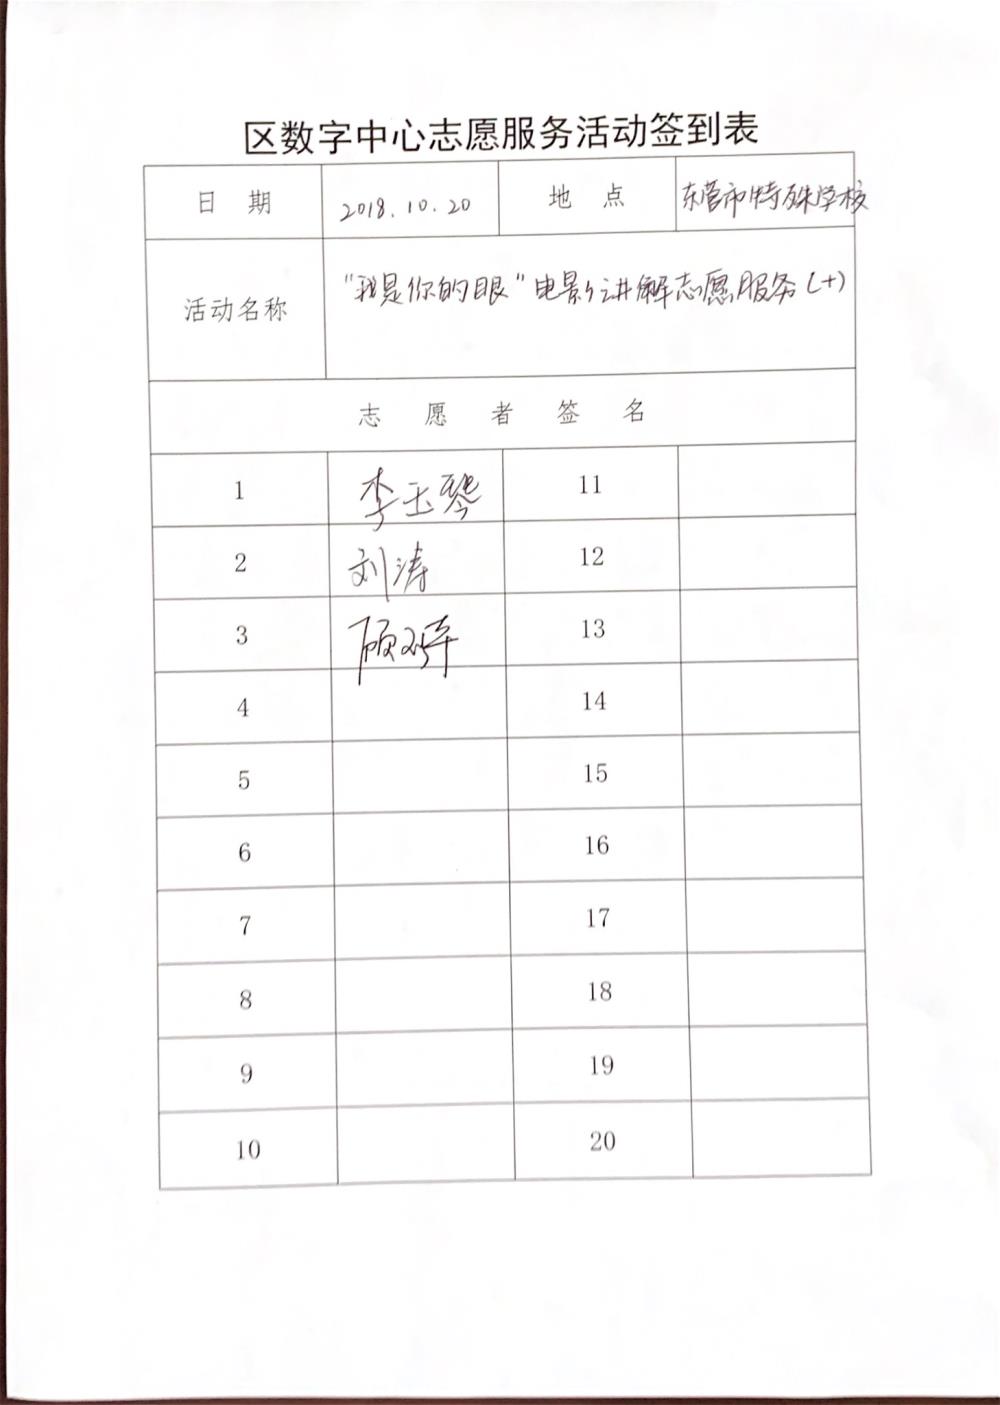 区数字中心志愿服务活动签到表
日 期 2018.10.20 地 点 东营市特殊学校
活动名称 "我是你的眼"电影讲解志愿服务(十)
志 愿 者 签 名
1 李玉琴 11
2 刘涛 12
3 顾 13
4 14
5 15
6 16
7 17
8 18
9 19
10 20